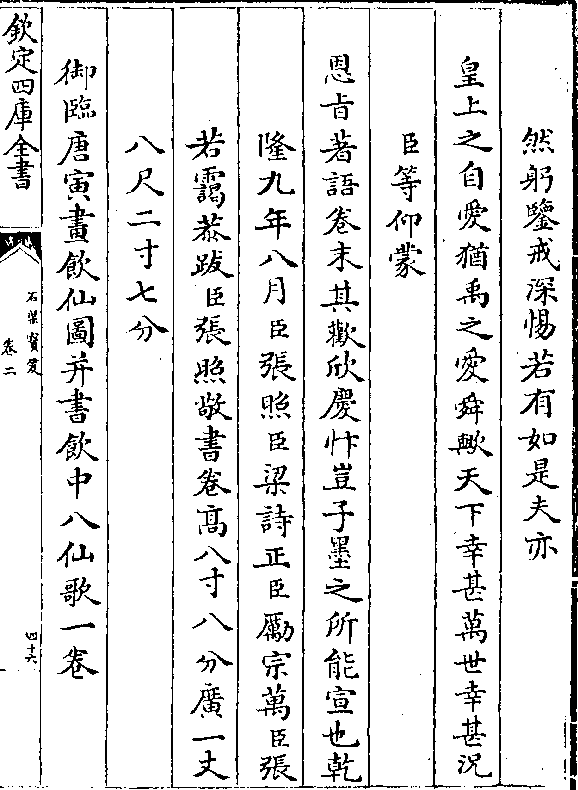 然躬鑒戒深惕若有如是夫亦
皇上之自愛猶禹之愛舜歟天下幸甚萬世幸甚況
臣等仰蒙
恩㫖著語卷末其歡欣慶忭豈子墨之所能宣也乾
隆九年八月臣張照臣梁詩正臣勵宗萬臣張
若靄恭跋臣張照敬書卷高八寸八分廣一丈
八尺二寸七分
御臨唐寅畫飲仙圖并書飲中八仙歌一卷
欽定四庫全書
石渠寶笈
卷二
四十六